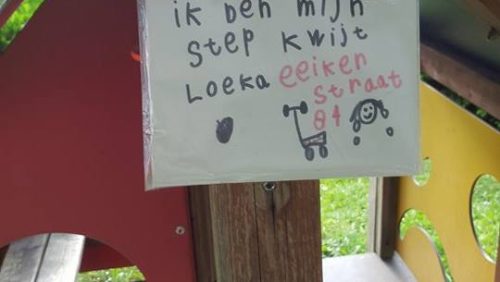 ik ben mijn
step kwijt
Loeka eeiken
straat
84